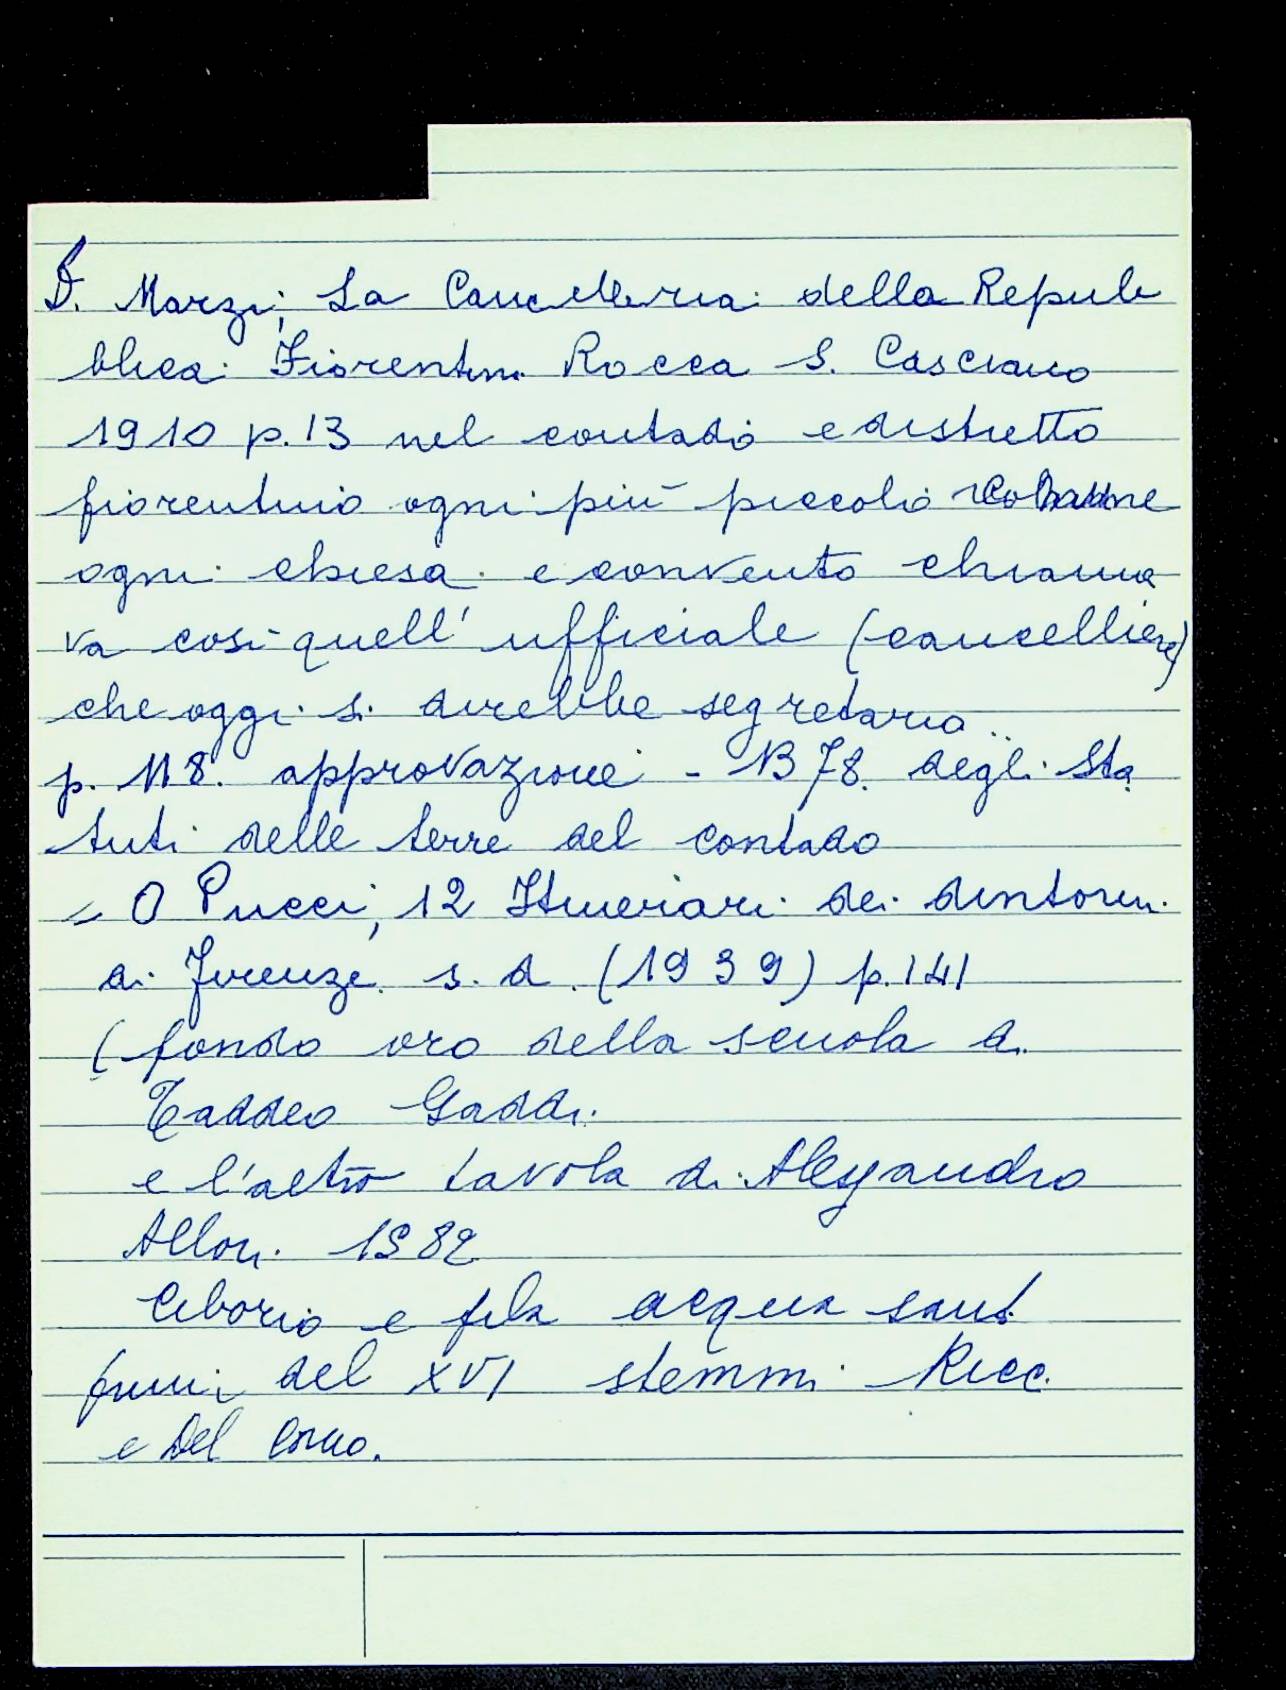 D. Marzi, La Cancelleria della Repub
blica Fiorentina Rocca S. Casciano
1910 p. 13 nel contado e distretto
fiorentino ogni più piccolo comune
ogni chiesa e convento chiama
va così quell' ufficiale (cancelliere)
che oggi si direbbe segretario
p. 118. approvazione - 1378. degli Sta
tuti delle terre del contado
- O Pucci, 12 Itinerari dei dintorni
di Firenze s. d. (1939) p. 141
(fondo oro della scuola di
Taddeo Gaddi
e l'altro tavola di Alessandro
Allori 1582
Ciborio e pila acqua sant
primi del XVI stemmi Ricc.
e Del Corno.